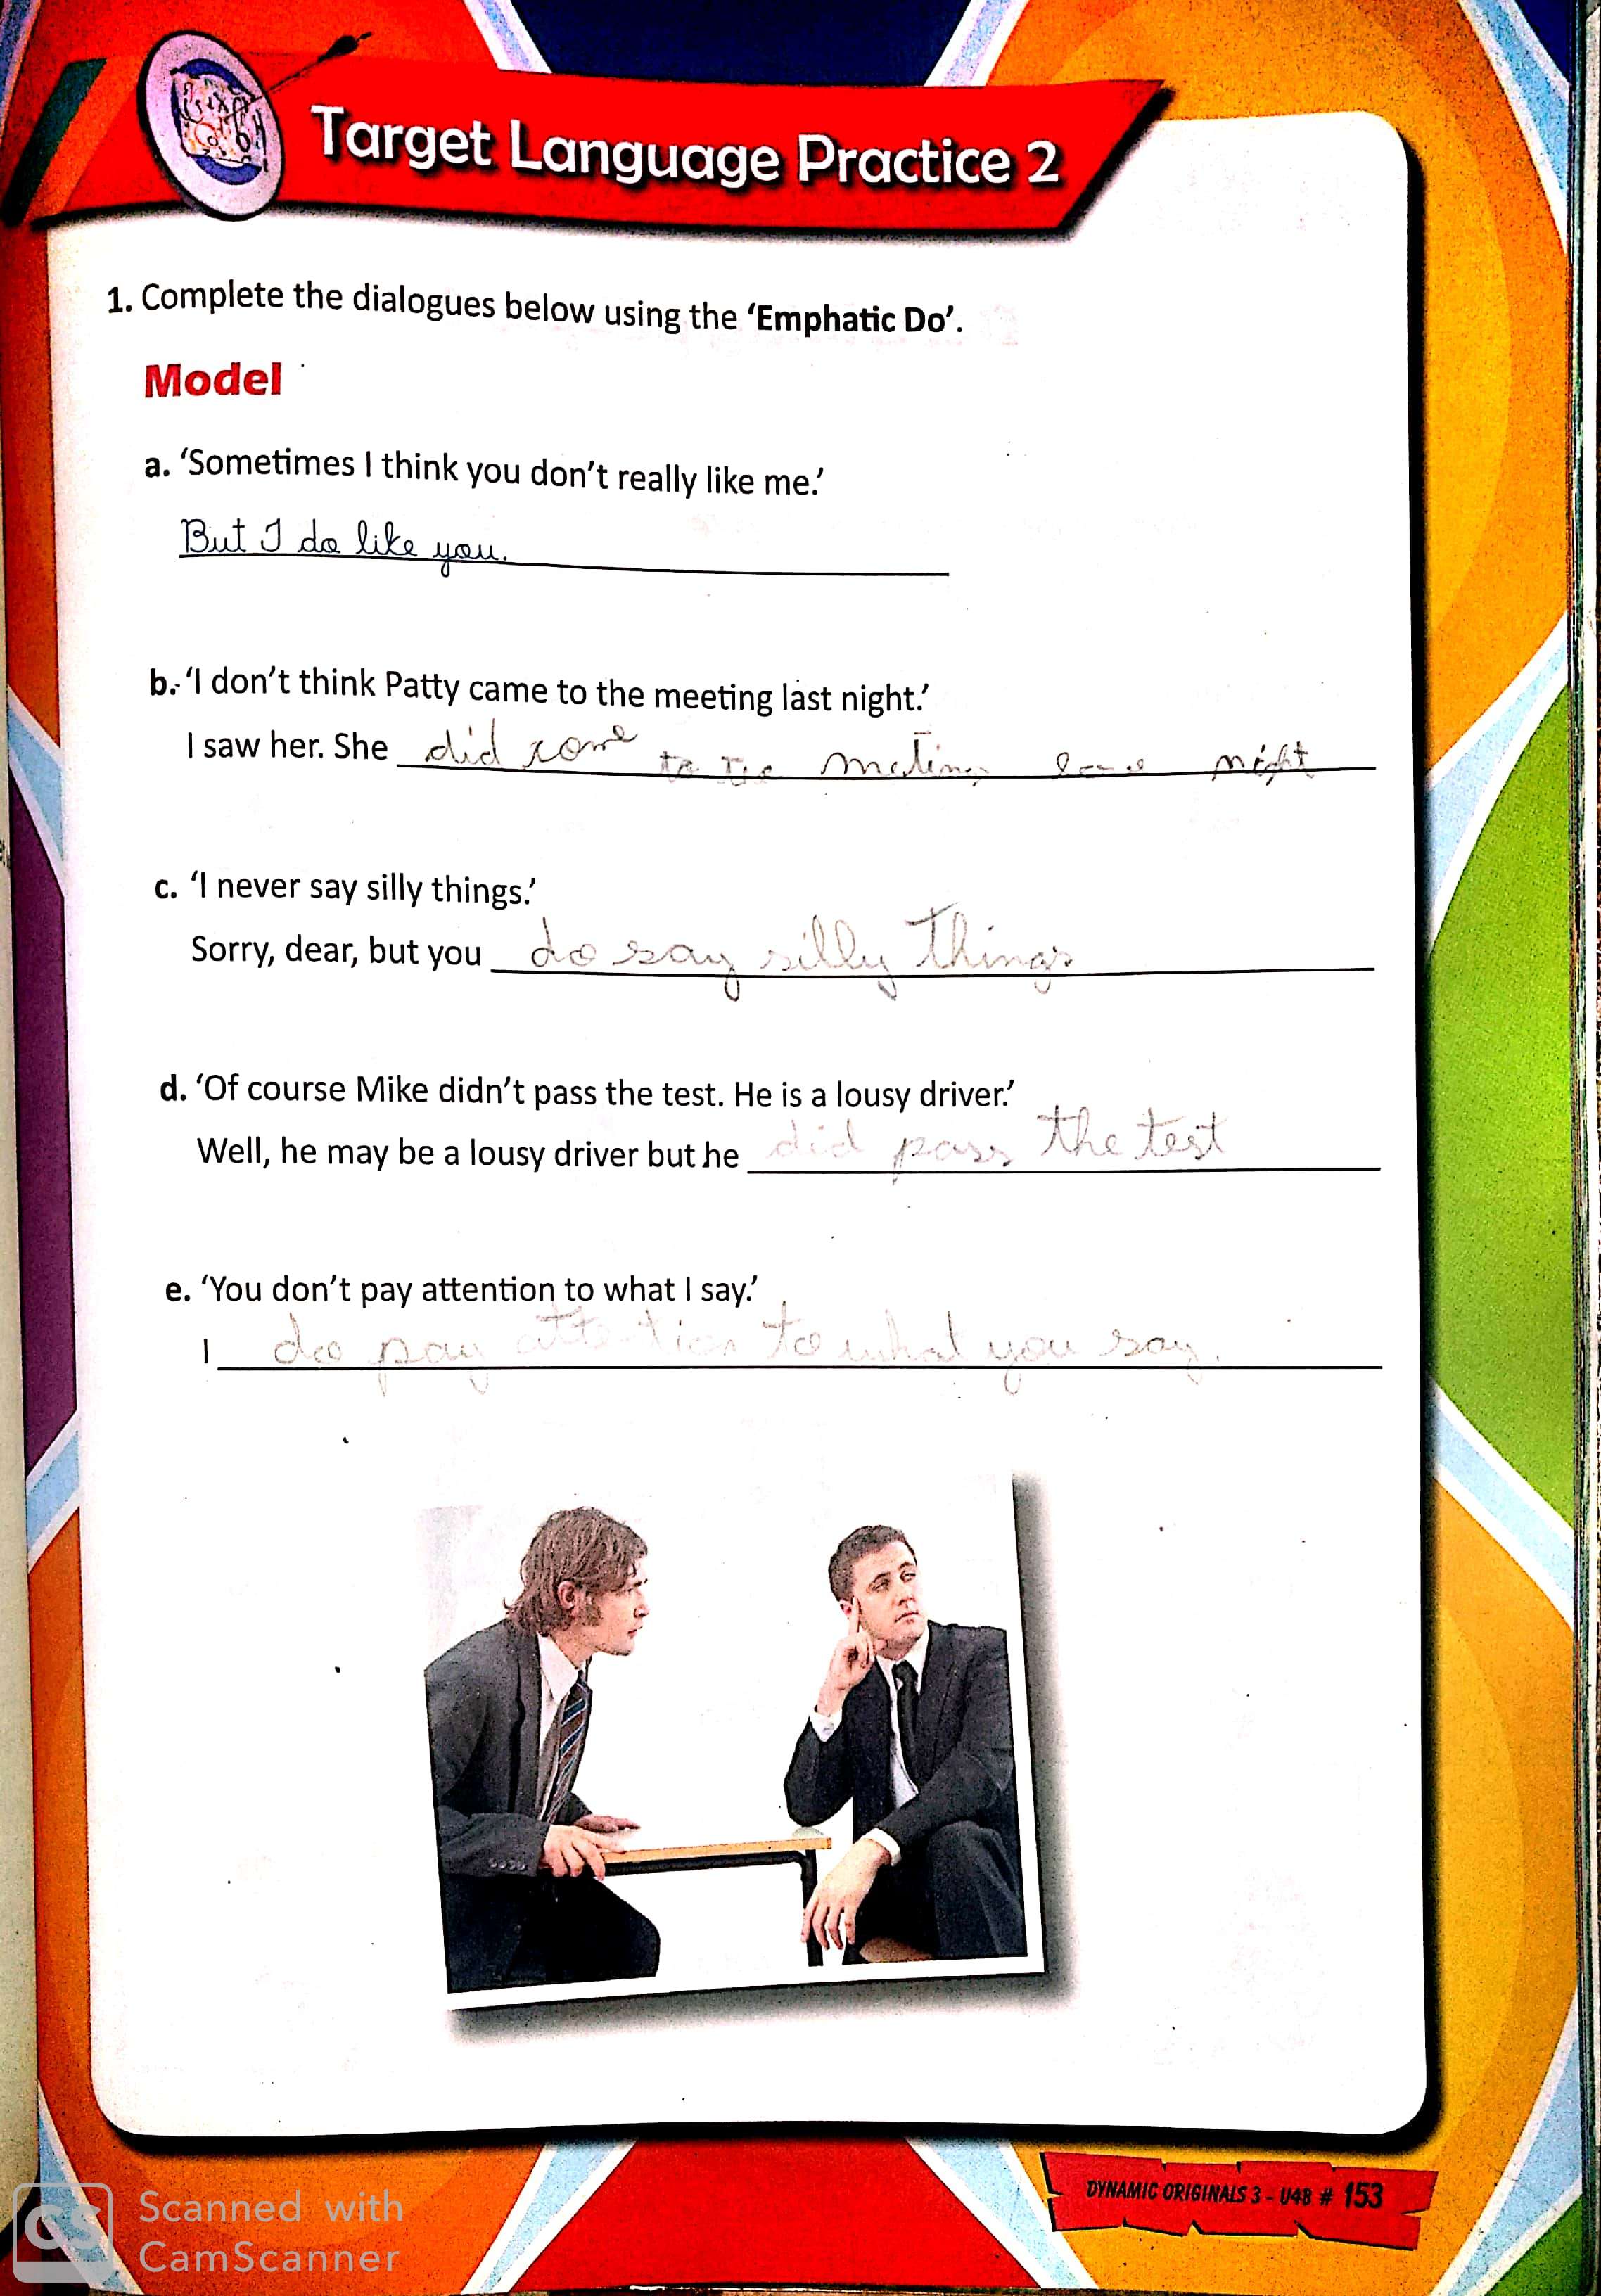 Target Language Practice 2
1. Complete the dialogues below using the ‘Emphatic Do’.
Model
a. ‘Sometimes I think you don’t really like me.’
But I do like you.
b. ‘I don’t think Patty came to the meeting last night.’
I saw her. She did come to night
c. ‘I never say silly things.’
Sorry, dear, but you do say silly things
d. ‘Of course Mike didn’t pass the test. He is a lousy driver.’
Well, he may be a lousy driver but he did pass the test
e. ‘You don’t pay attention to what I say.’
I do pay attention to what you say.
DYNAMIC ORIGINALS 3 - U48 # 153
CS Scanned with
CamScanner